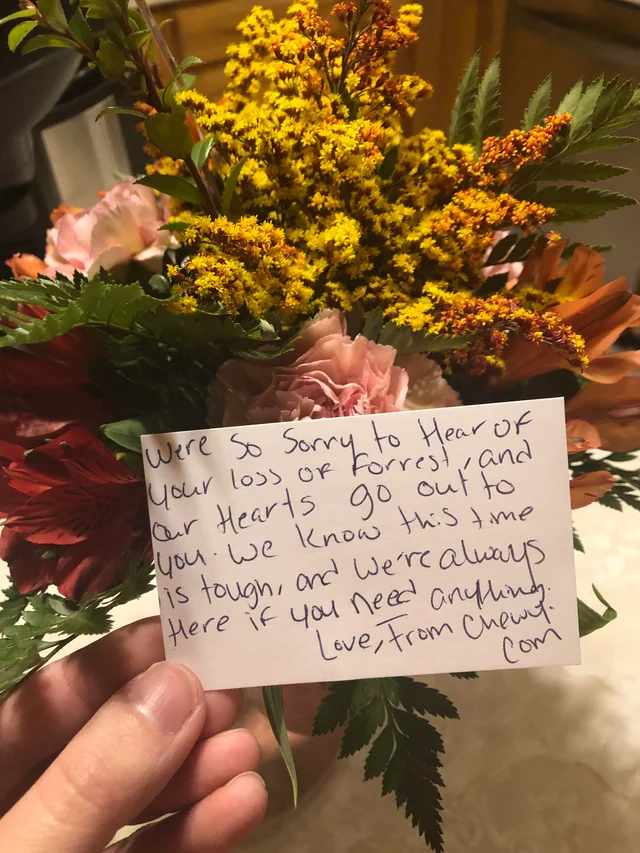 We're so sorry to Hear of
your loss of Forrest, and
our Hearts go out to
you. We know this time
is tough, and we're always
Here if you need anything.
Love, From Chewy.
com